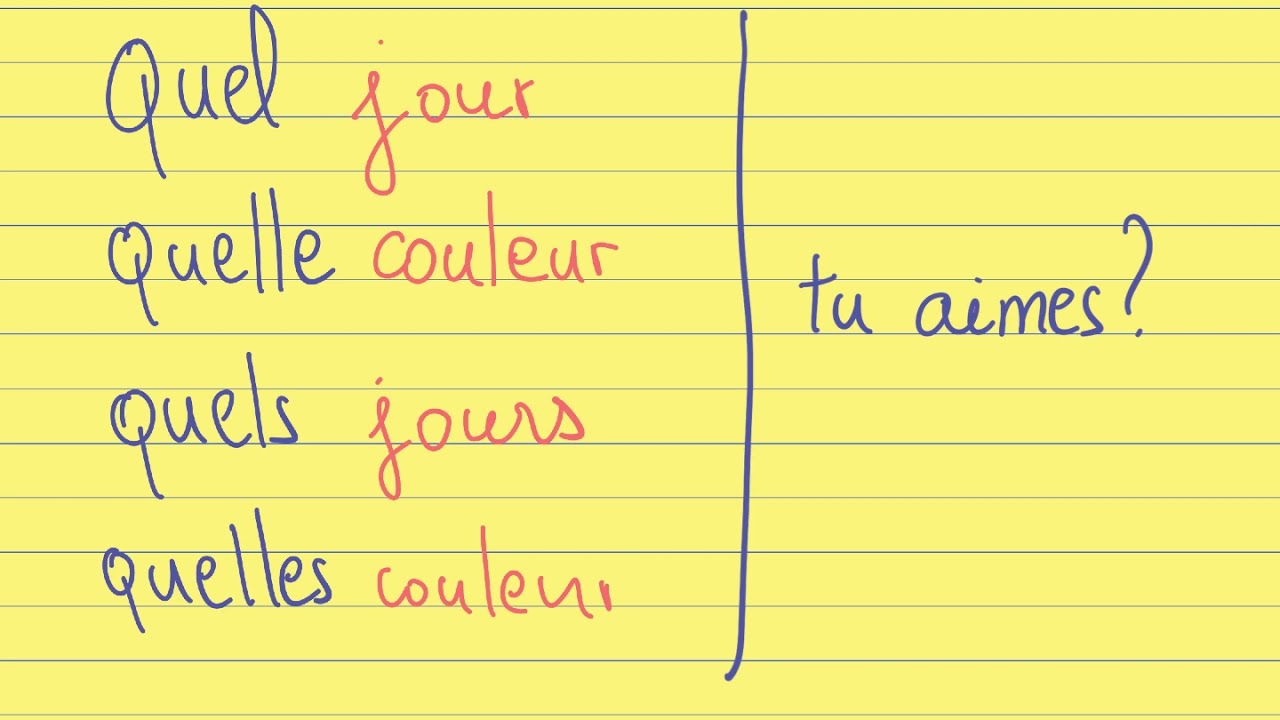 Quel jour
quelle couleur
quels jours
quelles couleur
tu aimes?